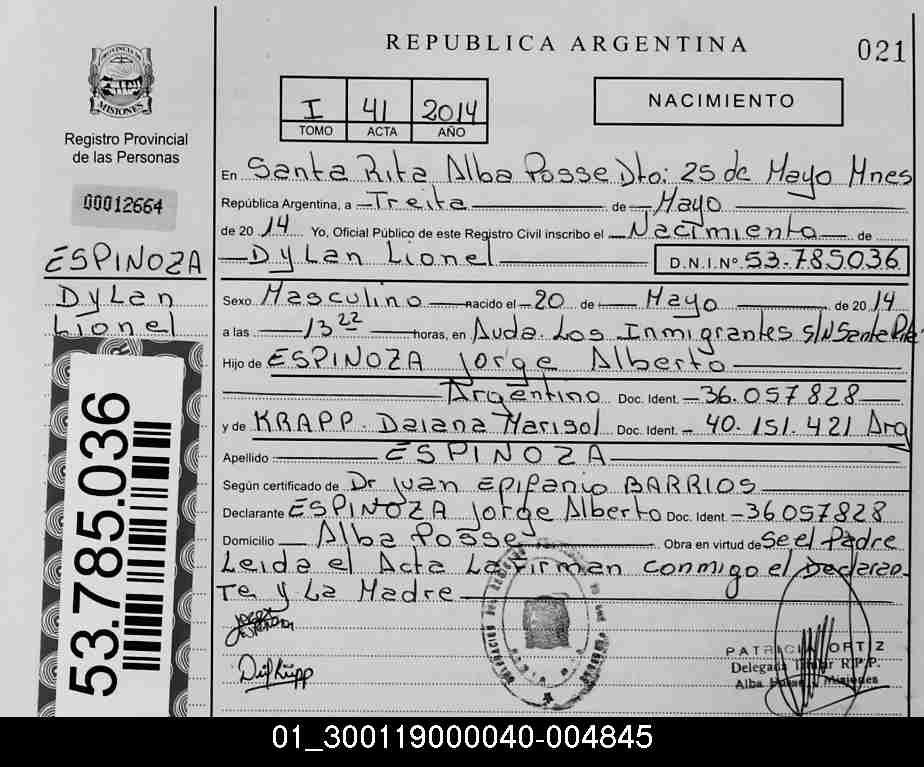 REPUBLICA ARGENTINA
021
PROVINCIA DE
MISIONES
Registro Provincial
de las Personas
00012664
ESPINOZA
Dylan
Lionel
53.785.036
I 41 2014
TOMO ACTA AÑO
NACIMIENTO
En Santa Rita Alba Posse Dto: 25 de Mayo Mnes
República Argentina, a Treita de Mayo
de 2014 Yo, Oficial Público de este Registro Civil inscribo el Nacimiento de
Dylan Lionel D.N.I.Nº 53.785036
Sexo Masculino nacido el 20 de Mayo de 2014
a las 13 22 horas, en Avda. Los Inmigrantes s/N Santa Rita
Hijo de ESPINOZA Jorge Alberto
Argentino Doc. Ident. 36.057828
y de KRAPP. Daiana Marisol Doc. Ident. 40.151.421 Arg
Apellido ESPINOZA
Según certificado de Dr Juan Epifanio BARRIOS
Declarante ESPINOZA Jorge Alberto Doc. Ident 36057828
Domicilio Alba Posse Obra en virtud de Se el Padre
Leida el Acta La firman conmigo el Declaran
te y La Madre
PATRICIA ORTIZ
Delegada Titular R.P.P.
Alba Posse Misiones
01_300119000040-004845